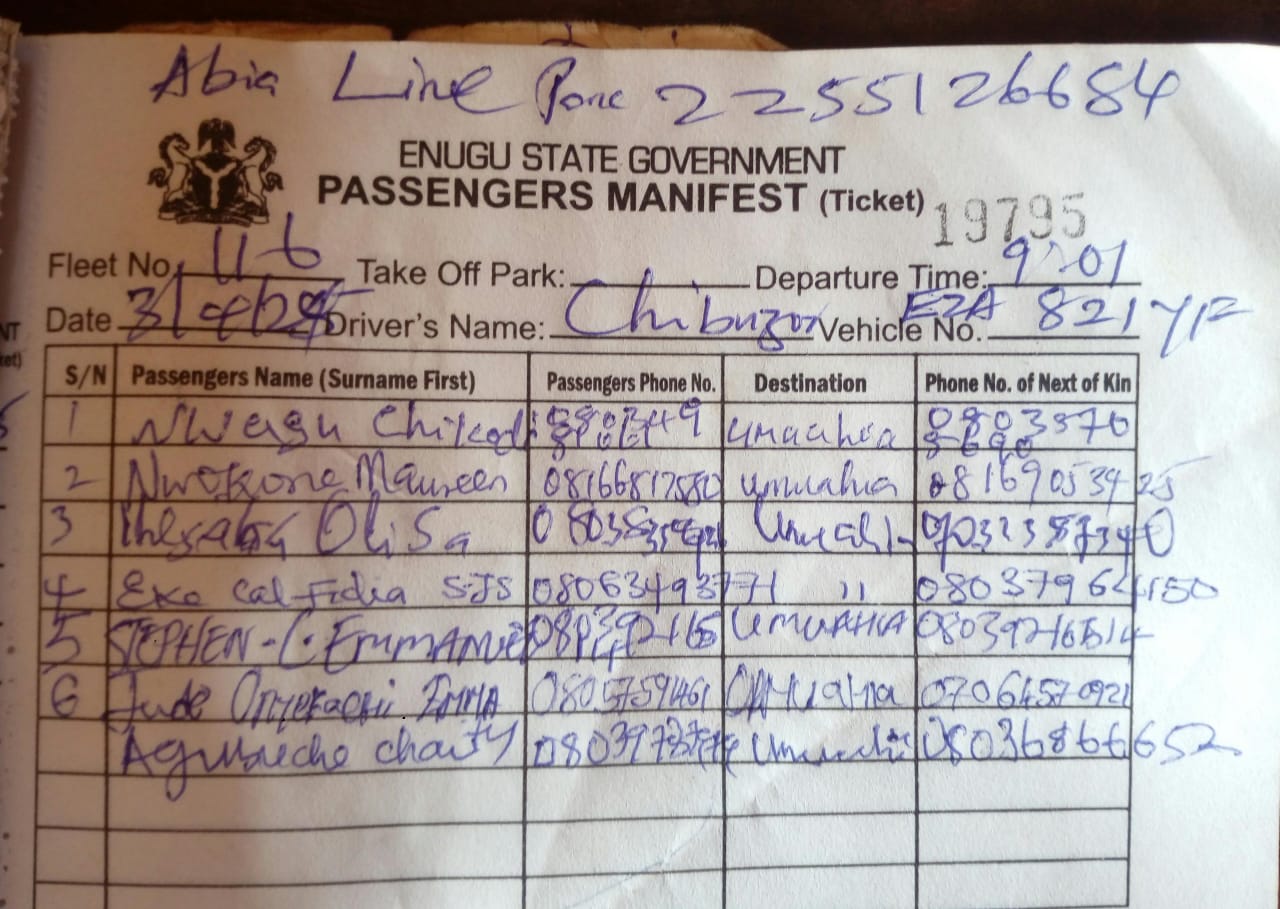 Abia Line Pone 2255126684
ENUGU STATE GOVERNMENT
PASSENGERS MANIFEST (Ticket) 19795
Fleet No. 116 Take Off Park: Departure Time: 9:01
Date 31 Driver's Name: Chibuzor Vehicle No. EZA 821 YF
S/N Passengers Name (Surname First) Passengers Phone No. Destination Phone No. of Next of Kin
1 Nwagu Chikodi umuahia
2 Nwokone Maureen 08166817580 umuahia 08169053425
3 Olisa
4 Eke Cal Fidia SJS 08063493771 " 08037964150
5 STEPHEN-C. EMMANUEL UMUAHIA
6 Jude Onyekachi 08057591461 Umuahia 07064570921
Charity 08036866652